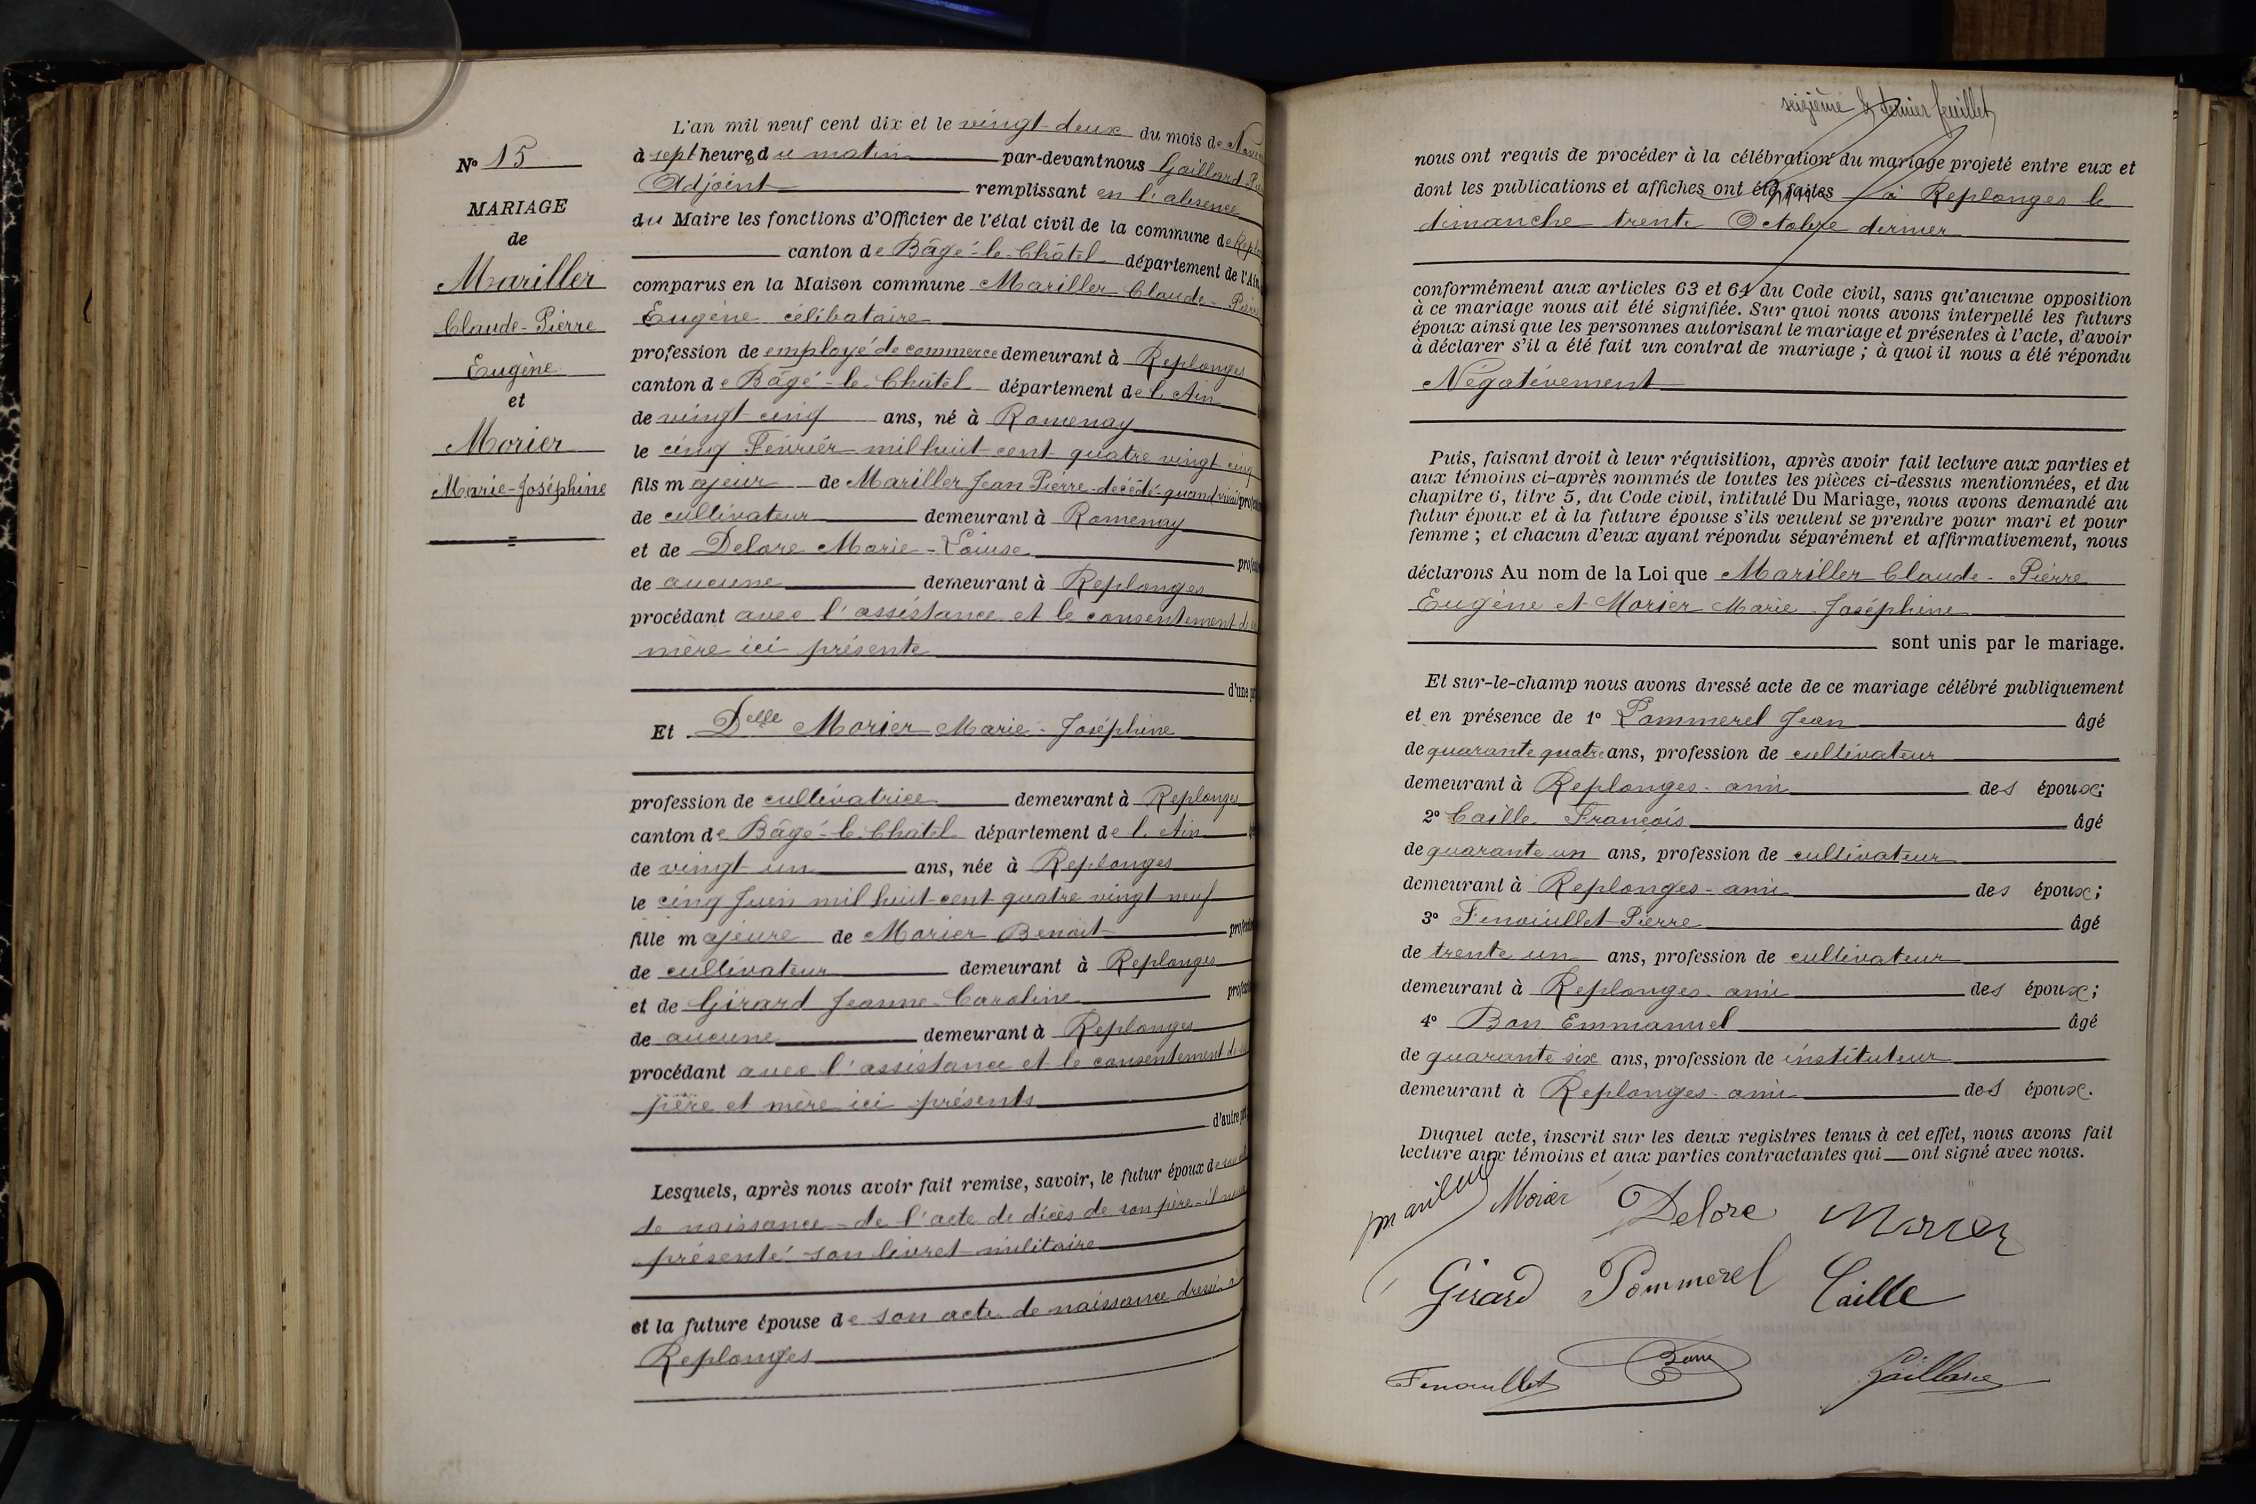 N° 15
MARIAGE
de
Mariller
Claude-Pierre
Eugène
et
Morier
Marie-Joséphine
L'an mil neuf cent dix et le vingt-deux du mois de
à sept heures du matin par-devant nous Gaillard
Adjoint remplissant en l'absence
du Maire les fonctions d'Officier de l'état civil de la commune de
canton de Bâgé-le-Châtel département de l'Ain
comparus en la Maison commune Mariller Claude-Pierre
Eugène célibataire
profession de employé de commerce demeurant à Replonges
canton de Bâgé-le-Châtel département de l'Ain
de vingt-cinq ans, né à Romenay
le cinq Février mil huit-cent-quatre vingt cinq
fils majeur de Mariller Jean Pierre décédé quand vivait
de cultivateur demeurant à Romenay
et de Delore Marie-Louise
de aucune demeurant à Replonges
procédant avec l'assistance et le consentement de
mère ici présente
d'une
Et Delle Morier Marie-Joséphine
profession de cultivatrice demeurant à Replonges
canton de Bâgé-le-Châtel département de l'Ain
de vingt un ans, née à Replonges
le cinq Juin mil huit-cent-quatre vingt neuf
fille majeure de Morier Benoit
de cultivateur demeurant à Replonges
et de Girard Jeanne-Caroline
de aucune demeurant à Replonges
procédant avec l'assistance et le consentement de
père et mère ici présents
d'autre
Lesquels, après nous avoir fait remise, savoir, le futur époux de
de naissance - de l'acte de décès de son père - il nous
présenté son livret militaire
et la future épouse de son acte de naissance dressé à
Replonges
seizième & dernier feuillet
nous ont requis de procéder à la célébration du mariage projeté entre eux et
dont les publications et affiches ont été faites à Replonges le
dimanche trente Octobre dernier
conformément aux articles 63 et 64 du Code civil, sans qu'aucune opposition
à ce mariage nous ait été signifiée. Sur quoi nous avons interpellé les futurs
époux ainsi que les personnes autorisant le mariage et présentes à l'acte, d'avoir
à déclarer s'il a été fait un contrat de mariage ; à quoi il nous a été répondu
Négativement
Puis, faisant droit à leur réquisition, après avoir fait lecture aux parties et
aux témoins ci-après nommés de toutes les pièces ci-dessus mentionnées, et du
chapitre 6, titre 5, du Code civil, intitulé Du Mariage, nous avons demandé au
futur époux et à la future épouse s'ils veulent se prendre pour mari et pour
femme ; et chacun d'eux ayant répondu séparément et affirmativement, nous
déclarons Au nom de la Loi que Mariller Claude-Pierre
Eugène et Morier Marie-Joséphine
sont unis par le mariage.
Et sur-le-champ nous avons dressé acte de ce mariage célébré publiquement
et en présence de 1° Pommerel Jean âgé
de quarante quatre ans, profession de cultivateur
demeurant à Replonges - ami des époux;
2° Caille François âgé
de quarante un ans, profession de cultivateur
demeurant à Replonges - ami des époux;
3° Fenouillet Pierre âgé
de trente un ans, profession de cultivateur
demeurant à Replonges - ami des époux;
4° Bon Emmanuel âgé
de quarante six ans, profession de instituteur
demeurant à Replonges - ami des époux.
Duquel acte, inscrit sur les deux registres tenus à cet effet, nous avons fait
lecture aux témoins et aux parties contractantes qui ont signé avec nous.
Mariller Morier Delore Morier
Girard Pommerel Caille
Fenouillet Bon Gaillard